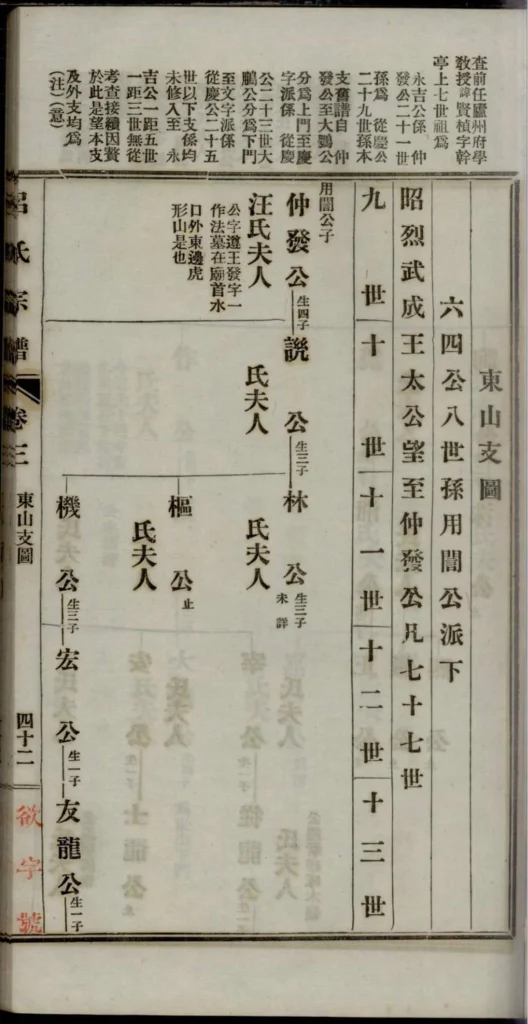 東山支圖
六四公八世孫用誾公派下
昭烈武成王太公望至仲發公凡七十七世
九世
十世
十一世
十二世
十三世
用誾公子
仲發公
生四子
說公
生三子
林公
生三子
未詳
汪氏夫人
氏夫人
氏夫人
公字遵王發字一
作法墓在廟首水
口外東邊虎
形山是也
樞公
止
氏夫人
機公
生三子
宏公
生一子
友龍公
生一子
查前任廬州府學
教授諱賢楨字幹
亭上七世祖爲
永吉公係仲
發公二十一世
孫爲從慶公
二十九世孫本
支舊譜自仲
發公至大鵬公
分爲上門至慶
字派係從慶
公二十三世大
鵬公分爲下門
至文字派係
從慶公二十五
世以下支係均
未修入至永
吉公一距五世
一距三世無從
考查接續因贅
於此是望本支
及外支均爲
(注)(意)
呂氏宗譜
卷三
東山支圖
四十二
欲字號